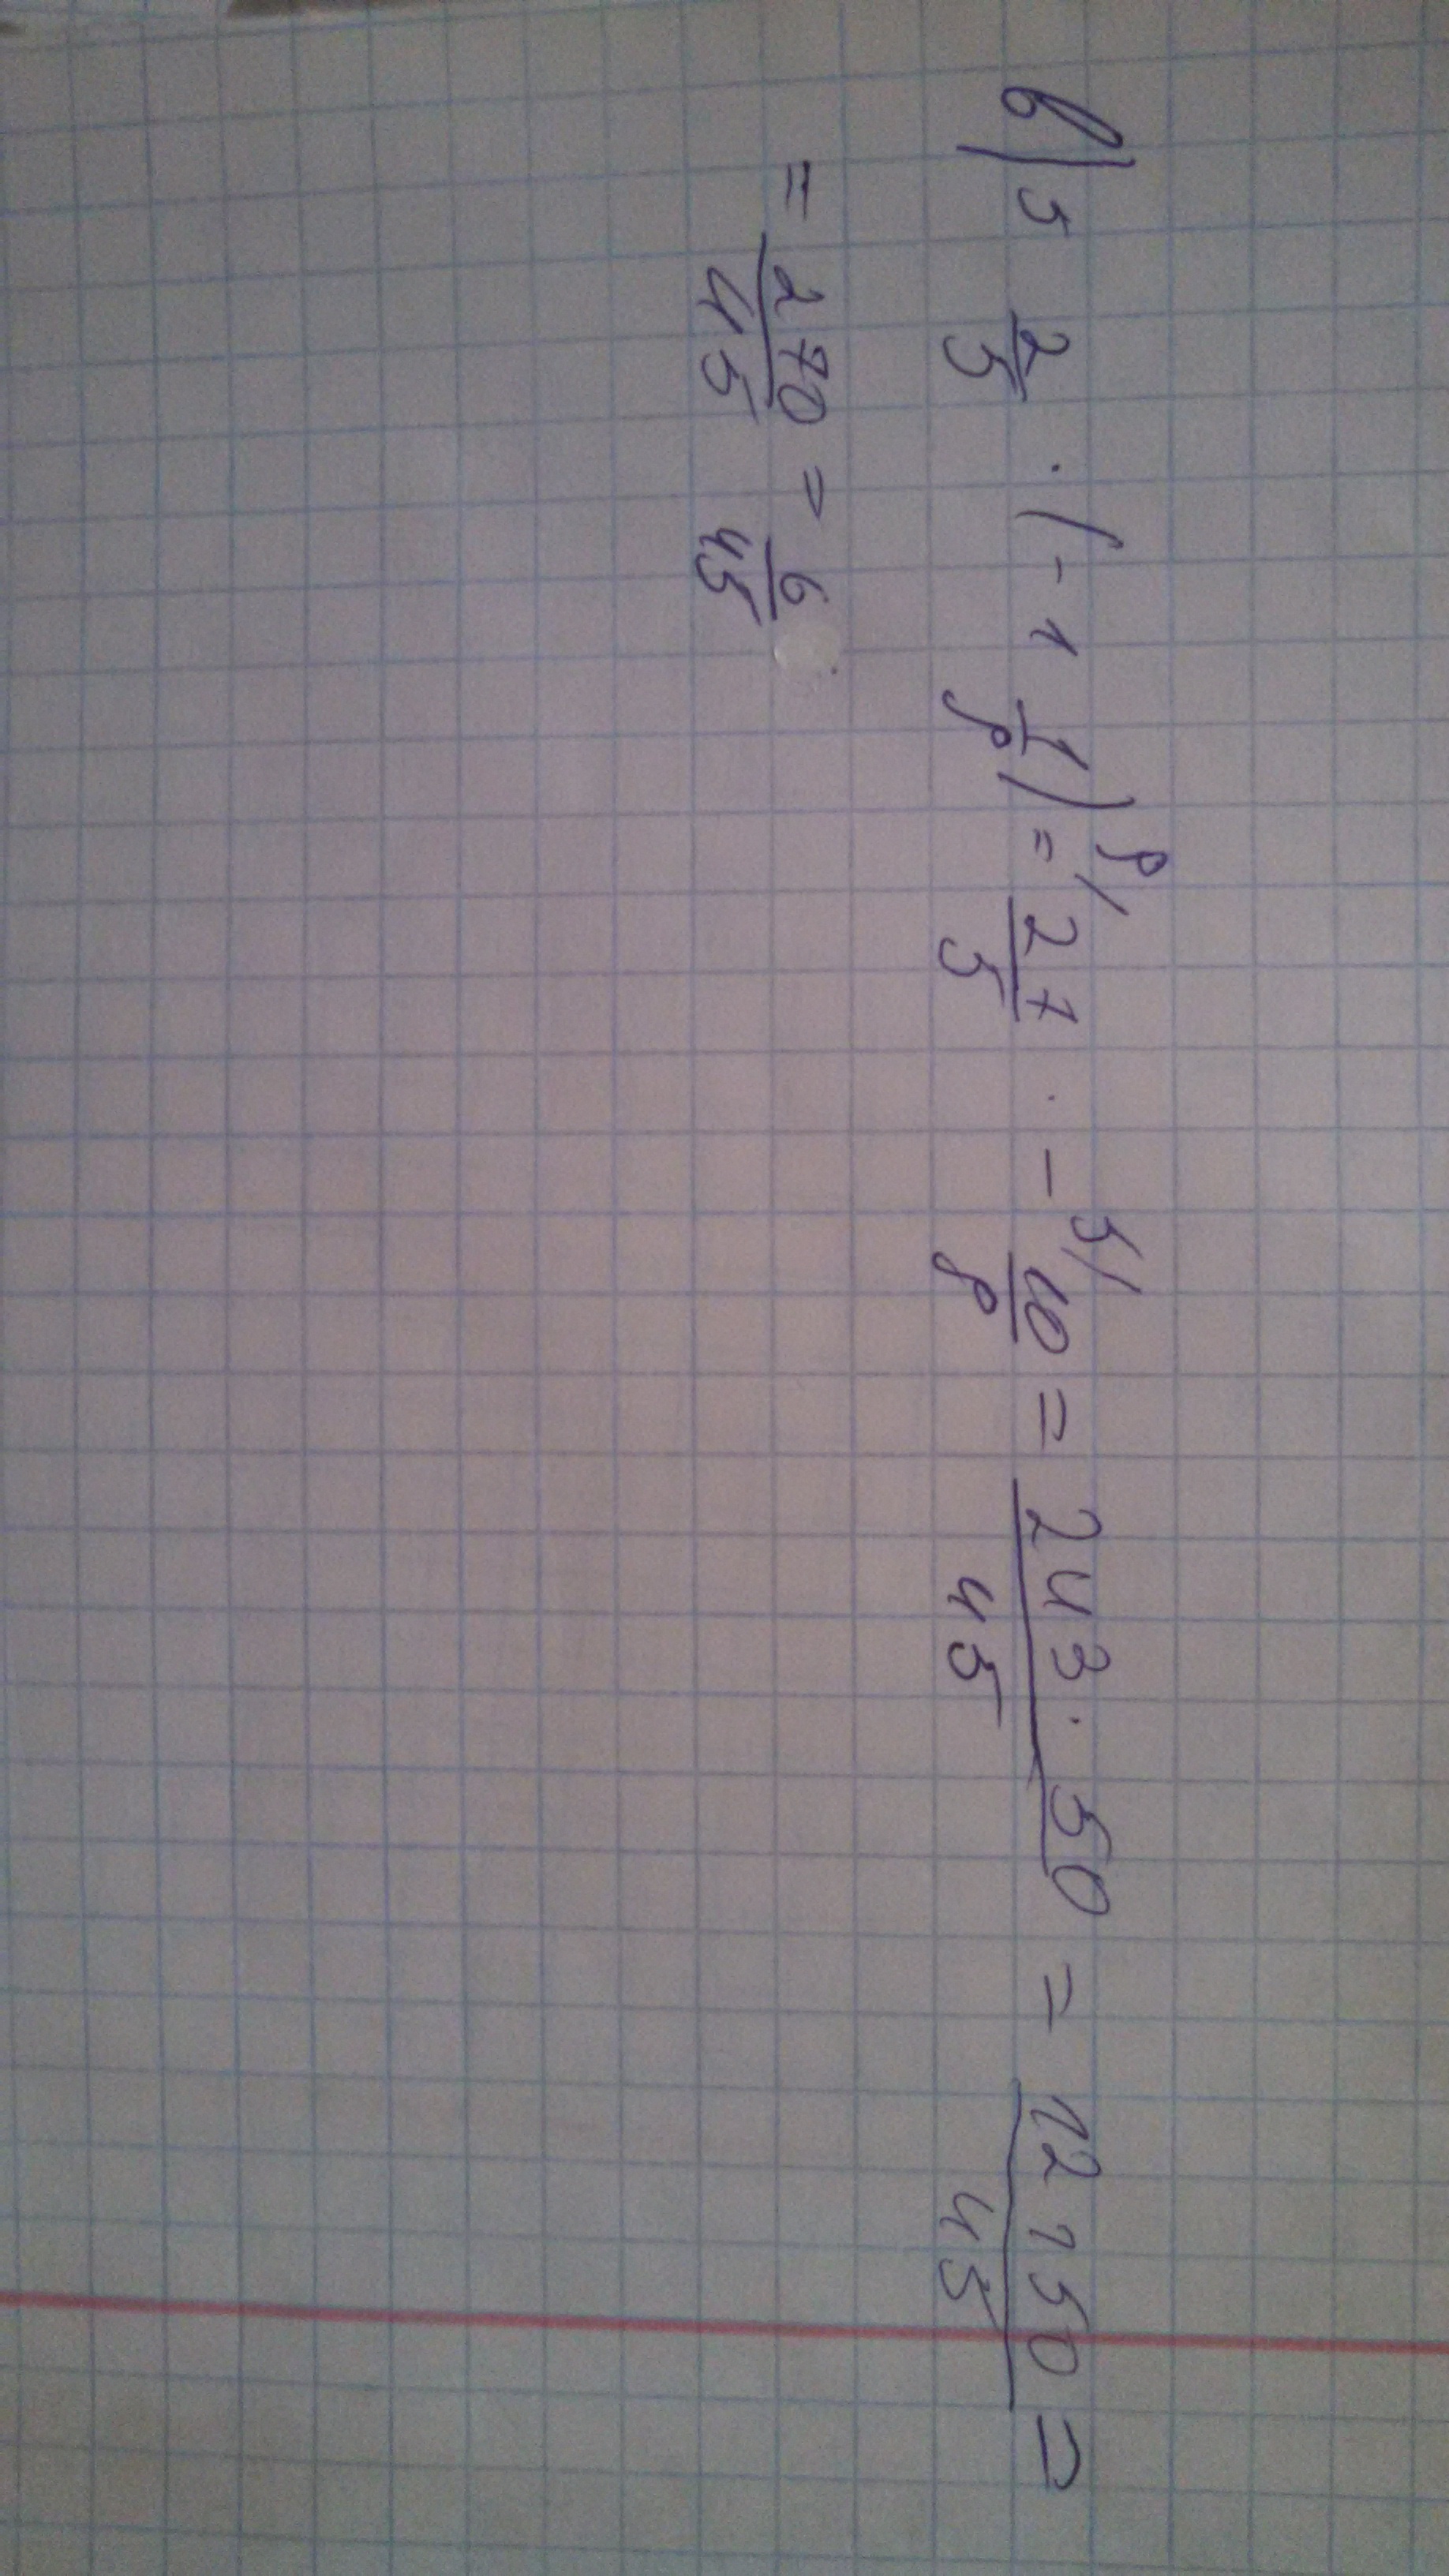 в) 5 2/5 · (- 1 1/9) = 9/ 27/5 · - 5/ 10/9 = 243 · 50/45 = 12150/45 =
= 270/45 = 6/45